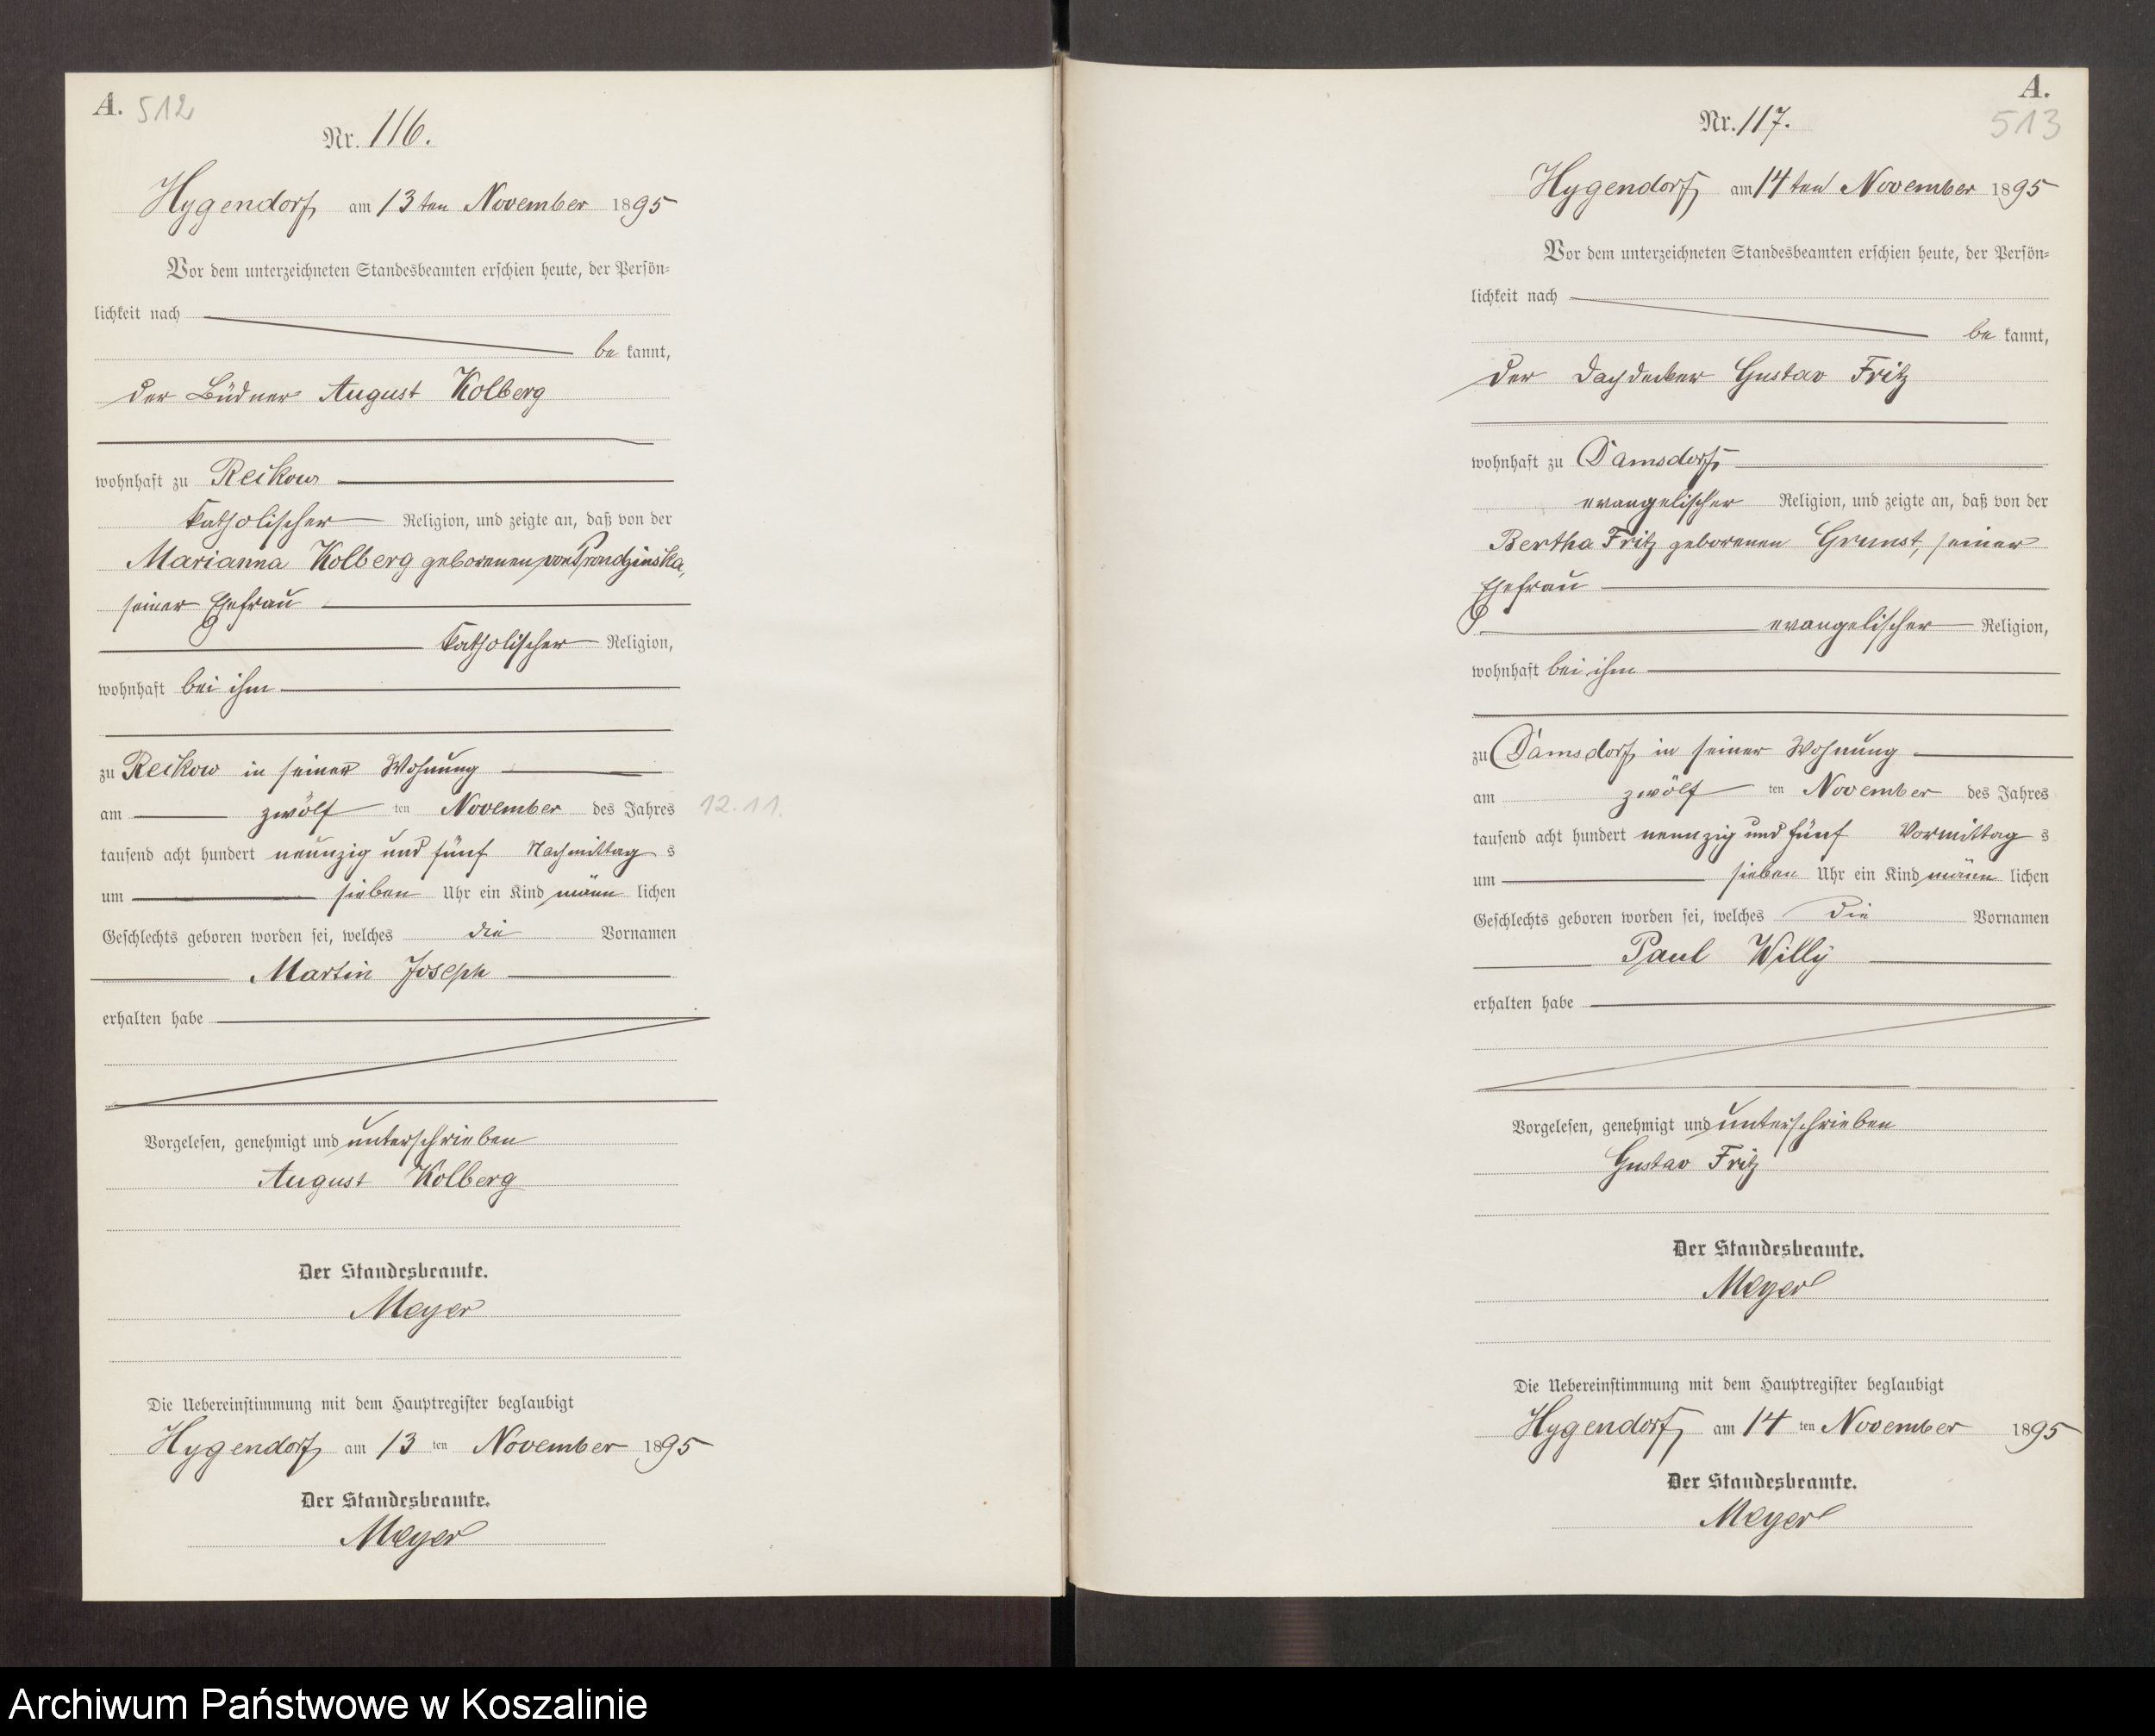 A. 512
Nr. 116.
Hygendorf am 13ten November 1895
Vor dem unterzeichneten Standesbeamten erschien heute, der Persön-
lichkeit nach
bekannt,
der Büdner August Kolberg
wohnhaft zu Reikow
katholischer Religion, und zeigte an, daß von der
Marianna Kolberg geborenen von Prondzinska,
seiner Ehefrau
katholischer Religion,
wohnhaft bei ihm
zu Reikow in seiner Wohnung
am zwölf ten November des Jahres 12.11.
tausend acht hundert neunzig und fünf Nachmittag s
um sieben Uhr ein Kind männ lichen
Geschlechts geboren worden sei, welches die Vornamen
Martin Joseph
erhalten habe
Vorgelesen, genehmigt und unterschrieben
August Kolberg
Der Standesbeamte.
Meyer
Die Uebereinstimmung mit dem Hauptregister beglaubigt
Hygendorf am 13 ten November 1895
Der Standesbeamte.
Meyer
A.
513
Nr. 117.
Hygendorf am 14ten November 1895
Vor dem unterzeichneten Standesbeamten erschien heute, der Persön-
lichkeit nach
bekannt,
der Dachdecker Gustav Fritz
wohnhaft zu Damsdorf
evangelischer Religion, und zeigte an, daß von der
Bertha Fritz geborenen Grunst, seiner
Ehefrau
evangelischer Religion,
wohnhaft bei ihm
zu Damsdorf in seiner Wohnung
am zwölf ten November des Jahres
tausend acht hundert neunzig und fünf Vormittag s
um sieben Uhr ein Kind männ lichen
Geschlechts geboren worden sei, welches die Vornamen
Paul Willy
erhalten habe
Vorgelesen, genehmigt und unterschrieben
Gustav Fritz
Der Standesbeamte.
Meyer
Die Uebereinstimmung mit dem Hauptregister beglaubigt
Hygendorf am 14 ten November 1895
Der Standesbeamte.
Meyer
Archiwum Państwowe w Koszalinie